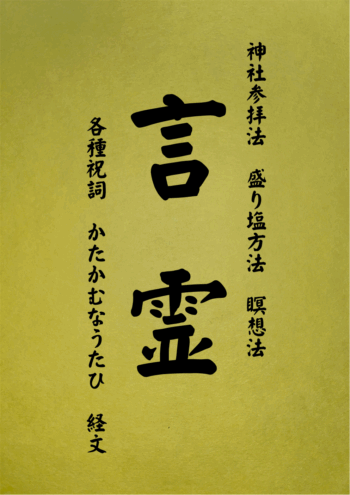 神社参拝法　盛り塩方法　瞑想法
言霊
各種祝詞　かたかむなうたひ　経文